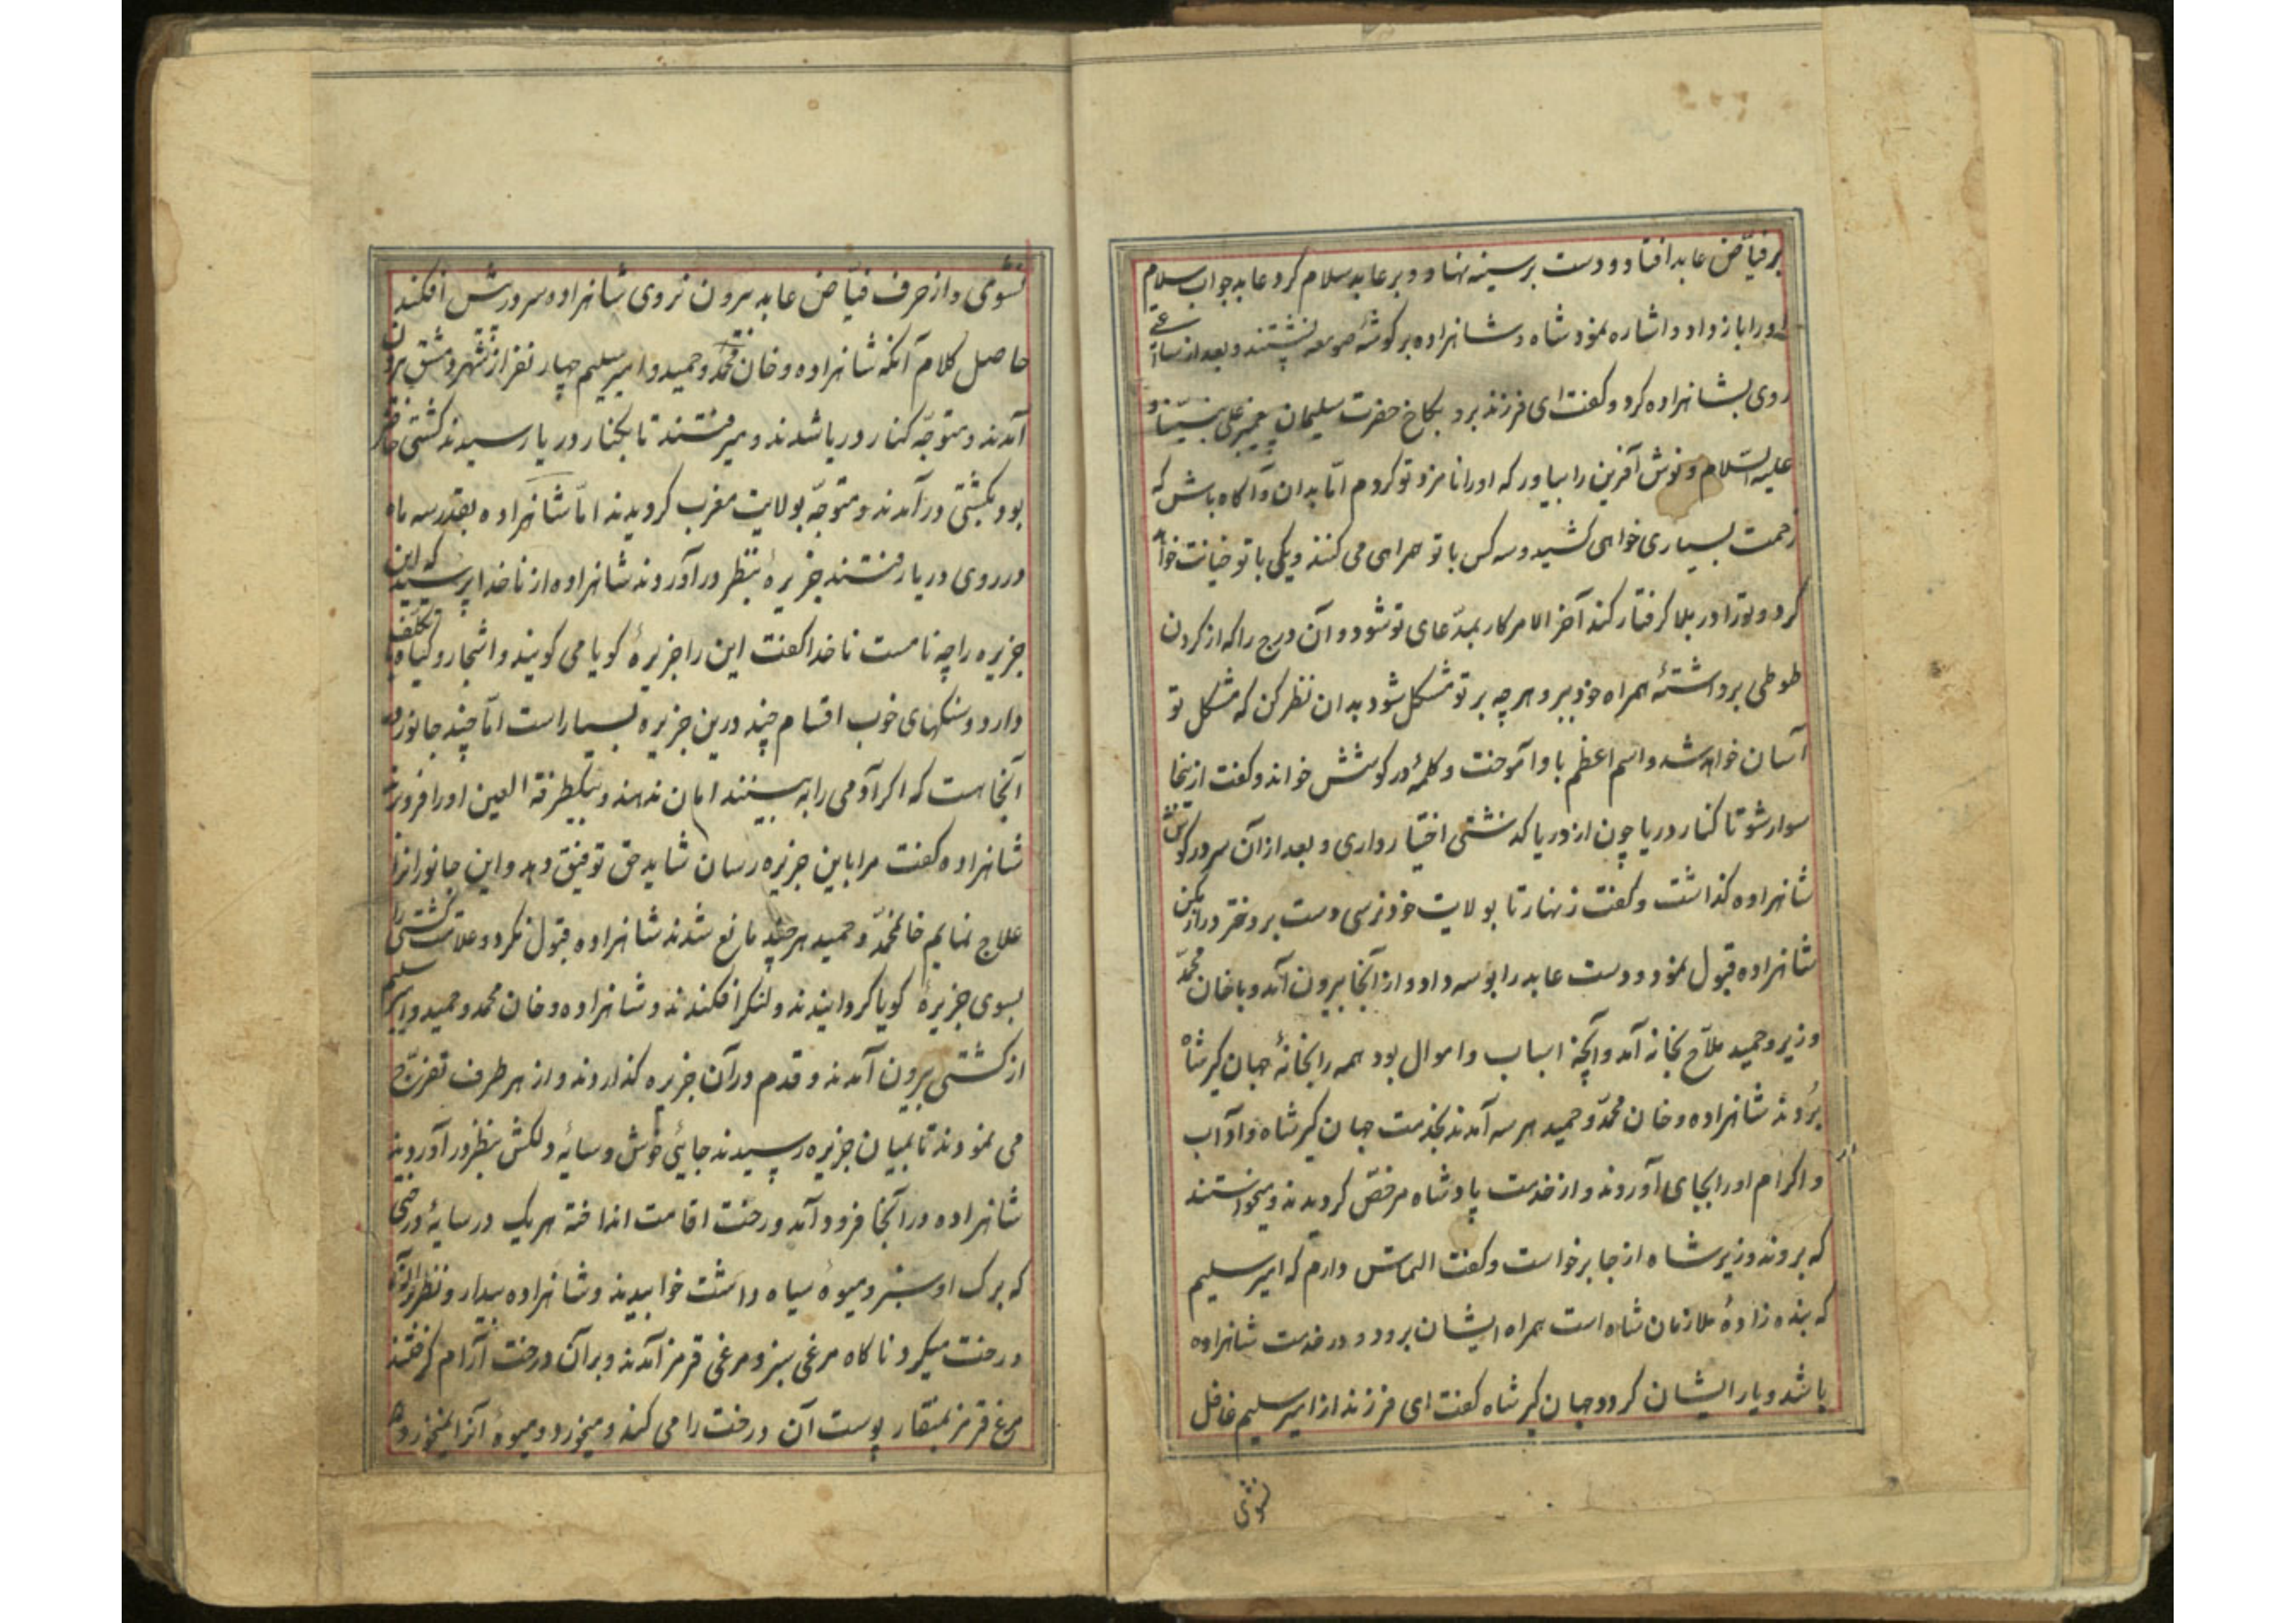 بر فیّاض عابد افتاد و دست بر سینه نهاد و بر عابد سلام کرد عابد جواب سلام
او را باز داد و اشاره نمود شاه و شاهزاده بر کوشهٔ صومعه نشستند و بعد از ساعتی
روی بشاهزاده کرد و کفت ای فرزند برو بکاخ حضرت سلیمان پیغمبر علی نبیّنا و
علیه السّلام و نوش آفرین را بیاور که او را نامزد تو کردم امّا بدان و آکاه باش که
زحمت بسیاری خواهی کشید و سه کس با تو همراهی می کنند و یکی با تو خیانت خواهد
کرد و تو را در بلا کرفتار کند آخر الامر کار بمدّعای تو شود و آن درج را که از کردن
طوطی برداشتهٔ همراه خود ببر و هر چه بر تو مشکل شود بدان نظر کن که مشکل تو
آسان خواهد شد و اسم اعظم باو آموخت و کلمهٔ در کوشش خواند و کفت از اینجا
سوار شو تا کنار دریا چون از دریا کذشتی اختیار داری و بعد از آن سر در کوش
شاهزاده کذاشت و کفت زنهار تا بولایت خود نرسی دست بر دختر دراز مکن
شاهزاده قبول نمود و دست عابد را بوسه داد و از آنجا بیرون آمد و با خان محمّد
وزیر و حمید ملاّح بخانه آمد و آنچه اسباب و اموال بود همه را بخانهٔ جهان کیر شاه
بُردند شاهزاده و خان محمّد و حمید هر سه آمدند بخدمت جهان کیر شاه و آداب
و اکرام او را بجای آوردند و از خدمت پادشاه مرخصّ کردیدند و میخواستند
که بروند وزیر شاه از جا برخواست و کفت التماس دارم که امیر سلیم
که بنده زادهٔ ملازمان شاه است همراه ایشان برود و در خدمت شاهزاده
باشد و یار ایشان کردد جهان کیر شاه کفت ای فرزند از امیر سلیم غافل
نشوی
نشوی و از حرف فیّاض عابد بیرون نروی شاهزاده سر در پیش افکند
حاصل کلام آنکه شاهزاده و خان محمّد و حمید و امیر سلیم چهار نفر از شهر دمشق بیرون
آمدند و متوجّه کنار دریا شدند و میرفتند تا بکنار دریا رسیدند کشتی حاضر
بود بکشتی در آمدند و متوجّه بولایت مغرب کردیدند امّا شاهزاده بقدر سه ماه
در روی دریا رفتند جزیرهٔ بنظر در آوردند شاهزاده از ناخدا پرسید که این
جزیره را چه نامست ناخدا کفت این را جزیرهٔ کویا می کویند و اشجار و کیاه مختلف
دارد و سنکهای خوب اقسام چند درین جزیره بسیار است امّا چند جانور در
آنجاست که اکر آدمی را به بینند امان ندهند و بیکطرفة العین او را فرو برند
شاهزاده کفت مرا باین جزیره رسان شاید حق توفیق دهد و این جانورانرا
علاج نمایم خان محمّد و حمید هر چند مانع شدند شاهزاده قبول نکرد و علامت کشتی را
بسوی جزیرهٔ کویا کردانیدند و لنکر افکندند و شاهزاده و خان محمد و حمید و امیر سلیم
از کشتی بیرون آمدند و قدم در آن جزیره کذاردند و از هر طرف تفرّج
می نمودند تا بمیان جزیره رسیدند جایئی خوش و سایهٔ دلکش بنظر در آوردند
شاهزاده در آنجا فرود آمد و رخت اقامت انداخته هر یک در سایهٔ درختی
که برک او سبز و میوهٔ سیاه داشت خوابیدند و شاهزاده بیدار و نظر بر آن
درخت میکرد ناکاه مرغی سبز و مرغی قرمز آمدند و بر آن درخت آرام کرفتند
مرغ قرمز بمنقار پوست آن درخت را می کند و میخورد و میوهٔ آنرا نمیخورد و